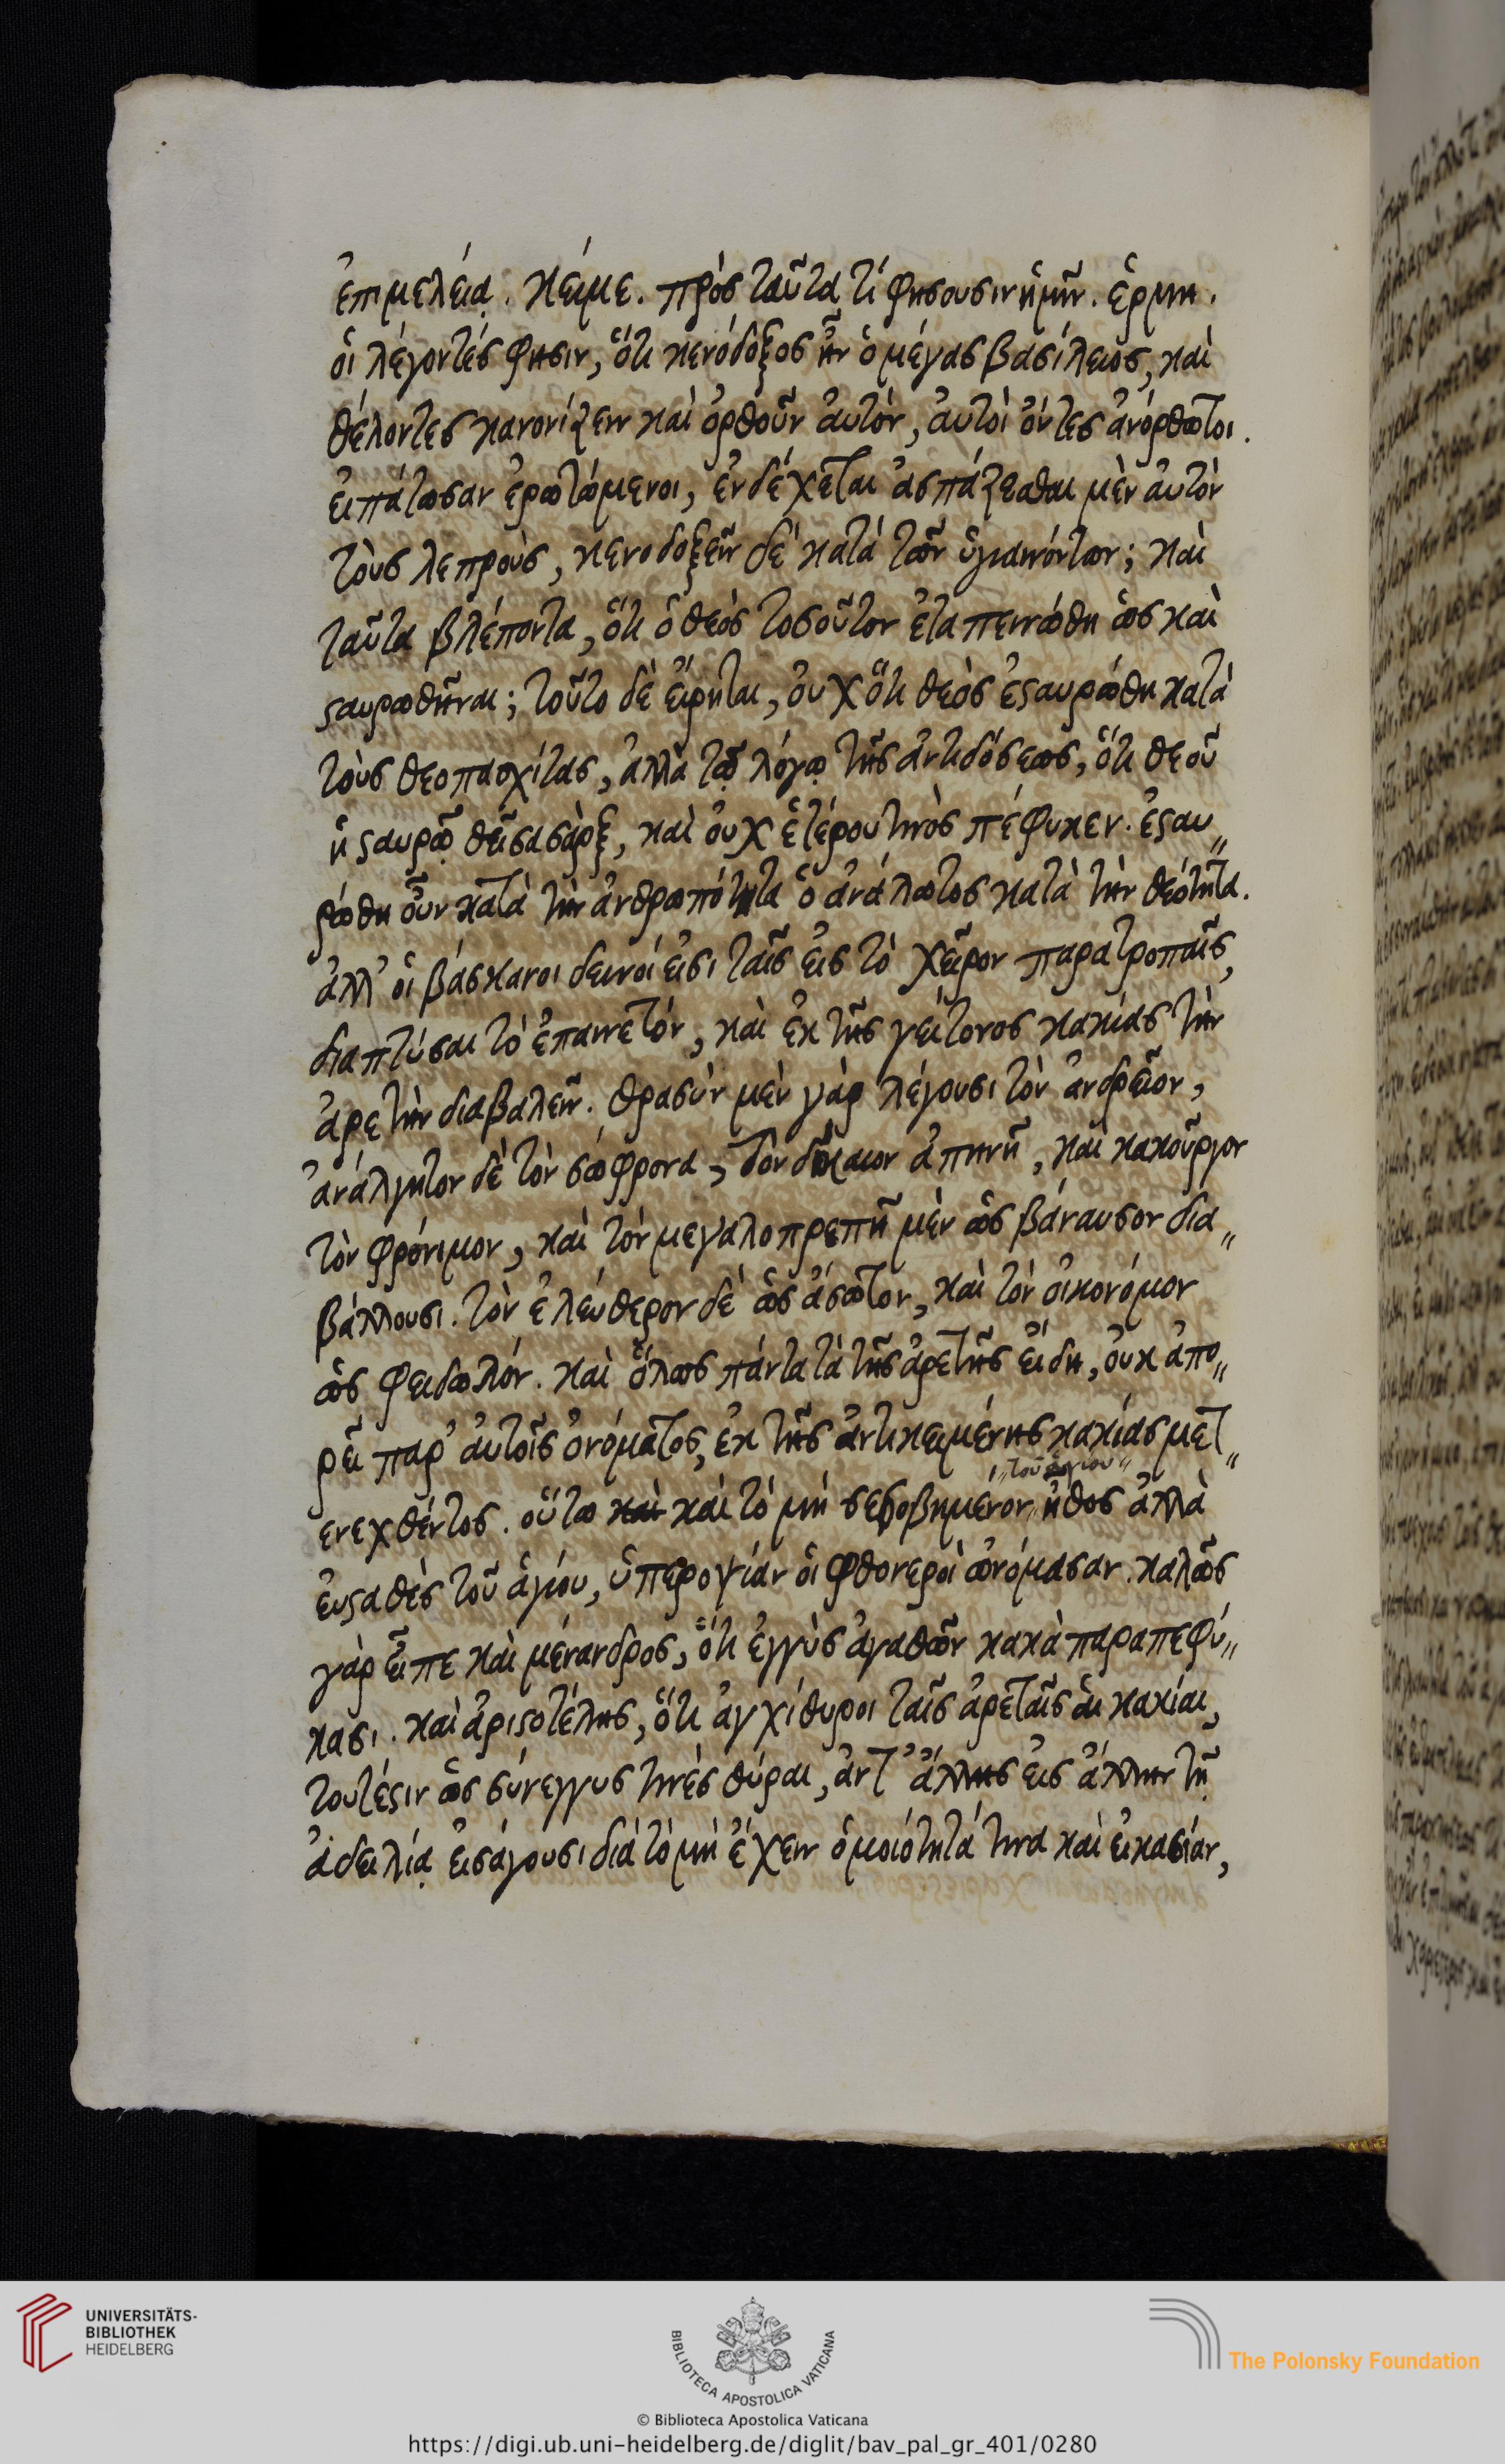 ἐπιμελείᾳ. κείμε. πρὸς ταῦτα τί φήσουσιν ἡμῖν. ἑρμη.
ὁι λέγοντές φησιν, ὅτι κενόδοξος ἦν ὁ μέγας βασίλειος, καὶ
θέλοντες κανονίζειν καὶ ὀρθοῦν ἀυτὸν, ἀυτὸι ὄντες ἀνόρθωτοι.
ἐιπάτωσαν ἐρωτώμενοι, ἐνδέχεται ἀσπάζεσθαι μὲν ἀυτὸν
τοὺς λεπροὺς, κενοδοξεῖν δὲ κατὰ τῶν ὑγιαινόντων; καὶ
ταῦτα βλέποντα, ὅτι ὁ θεὸς τοσοῦτον ἐταπεινώθη ὡς καὶ
σταυρωθῆναι; τοῦτο δὲ ἔιρηται, ὀυχ ὅτι θεὸς ἐσταυρώθη κατὰ
τοὺς θεοπασχίτας, ἀλλὰ τῷ λόγῳ τῆς ἀντιδόσεως, ὅτι θεοῦ
ἡ σταυρῷ θεῖσα σὰρξ, καὶ ὀυχ ἑτέρου τινὸς πέφυκεν. ἐσταυ„
ρώθη οὖν κατὰ τὴν ἀνθρωπότητα ὁ ἀνάλωτος κατὰ τὴν θεότητα.
ἀλλ' ὁι βάσκανοι δεινοί ἐισι ταῖς ἐις τὸ χεῖρον παρατροπαῖς,
διαπτύσαι τὸ ἐπαινετόν, καὶ ἐκ τῆς γείτονος κακίας τὴν
ἀρετὴν διαβαλεῖν. θρασὺν μὲν γὰρ λέγουσι τὸν ἀνδρεῖον,
ἀνάλγητον δὲ τὸν σώφρονα, τὸν δίκαιον ἀπηνῆ, καὶ κακοῦργον
τὸν φρόνιμον, καὶ τὸν μεγαλοπρεπῆ μὲν ὡς βάναυσον δια„
βάλλουσι. τὸν ἐλεύθερον δὲ ὡς ἄσωτον, καὶ τὸν ὀικονόμον
ὡς φειδωλόν. καὶ ὅλως πάντα τὰ τῆς ἀρετῆς ἔιδη, ὀυκ ἀπο„
ρεῖ παρ' ἀυτοῖς ὀνόματος, ἐκ τῆς ἀντικειμένης κακίας μετ„
ενεχθέντος. οὕτω καὶ καὶ τὸ μὴ σεσοβημένον „τοῦ ἁγίου„ ἦθος ἀλλὰ
ἐυσταθὲς τοῦ ἁγίου, ὑπεροψίαν ὁι φθονεροὶ ὠνόμασαν. καλῶς
γὰρ εἶπε καὶ μένανδρος, ὅτι ἐγγὺς ἀγαθῶν κακὰ παραπεφύ„
κασι. καὶ ἀριστοτέλης, ὅτι ἀγχίθυροι ταῖς ἀρεταῖς ἁι κακίαι,
τουτέστιν ὡς σύνεγγυς τινὲς θύραι, ἀντ' ἄλλης ἐις ἄλλην τῇ
ἀδειλίᾳ ἐισάγουσι διὰ τὸ μὴ ἔχειν ὁμοιότητά τινα καὶ ἐικασίαν,
UNIVERSITÄTS-
BIBLIOTHEK
HEIDELBERG
BIBLIOTECA APOSTOLICA VATICANA
The Polonsky Foundation
© Biblioteca Apostolica Vaticana
https://digi.ub.uni-heidelberg.de/diglit/bav_pal_gr_401/0280